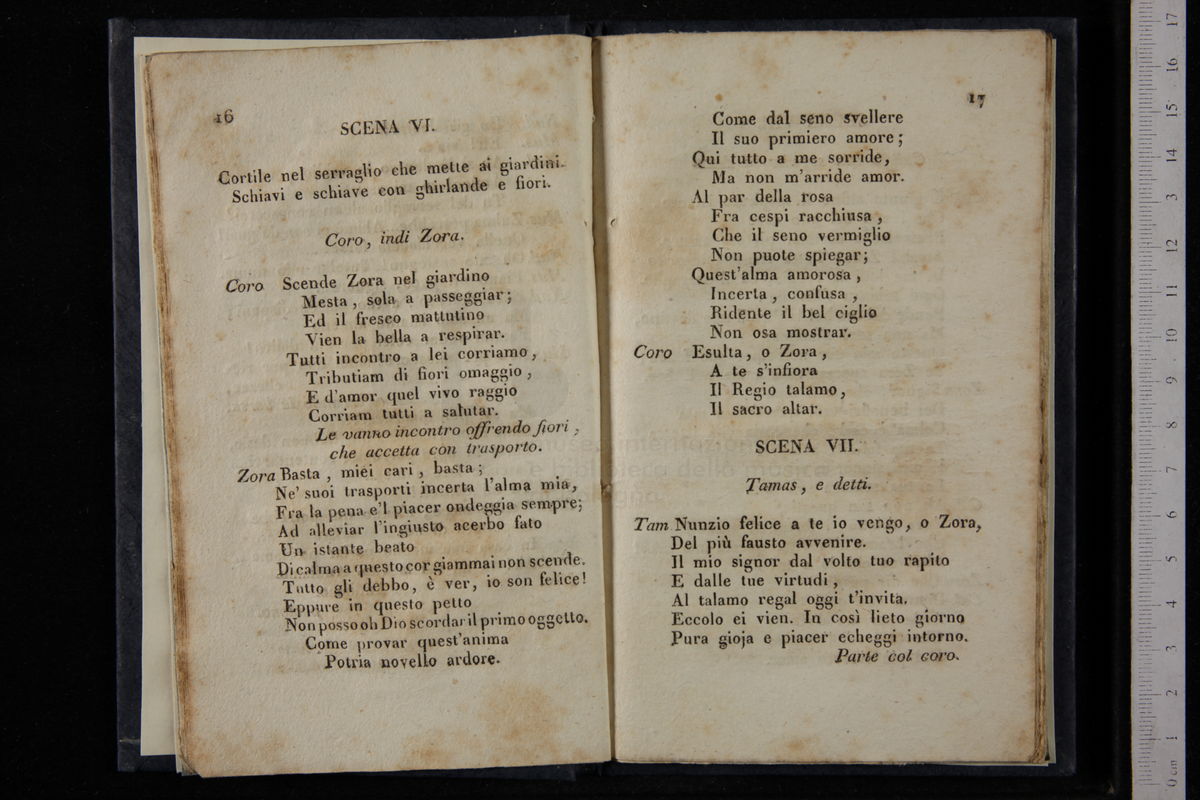 16
SCENA VI.
Cortile nel serraglio che mette ai giardini.
Schiavi e schiave con ghirlande e fiori.
Coro, indi Zora.
Coro Scende Zora nel giardino
Mesta , sola a passeggiar ;
Ed il fresco mattutino
Vien la bella a respirar.
Tutti incontro a lei corriamo ,
Tributiam di fiori omaggio ,
E d'amor quel vivo raggio
Corriam tutti a salutar.
Le vanno incontro offrendo fiori ,
che accetta con trasporto.
Zora Basta , miei cari , basta ;
Ne' suoi trasporti incerta l'alma mia,
Fra la pena e'l piacer ondeggia sempre;
Ad alleviar l'ingiusto acerbo fato
Un istante beato
Di calma a questo cor giammai non scende.
Tutto gli debbo, è ver, io son felice!
Eppure in questo petto
Non posso oh Dio scordar il primo oggetto.
Come provar quest'anima
Potria novello ardore.
17
Come dal seno svellere
Il suo primiero amore ;
Qui tutto a me sorride,
Ma non m'arride amor.
Al par della rosa
Fra cespi racchiusa ,
Che il seno vermiglio
Non puote spiegar;
Quest'alma amorosa ,
Incerta , confusa ,
Ridente il bel ciglio
Non osa mostrar.
Coro Esulta, o Zora ,
A te s'infiora
Il Regio talamo ,
Il sacro altar.
SCENA VII.
Tamas, e detti.
Tam Nunzio felice a te io vengo, o Zora,
Del più fausto avvenire.
Il mio signor dal volto tuo rapito
E dalle tue virtudi ,
Al talamo regal oggi t'invita.
Eccolo ei vien. In così lieto giorno
Pura gioja e piacer echeggi intorno.
Parte col coro.
museo internazionale
e biblioteca della musica
Bologna
0 cm 1 2 3 4 5 6 7 8 9 10 11 12 13 14 15 16 17